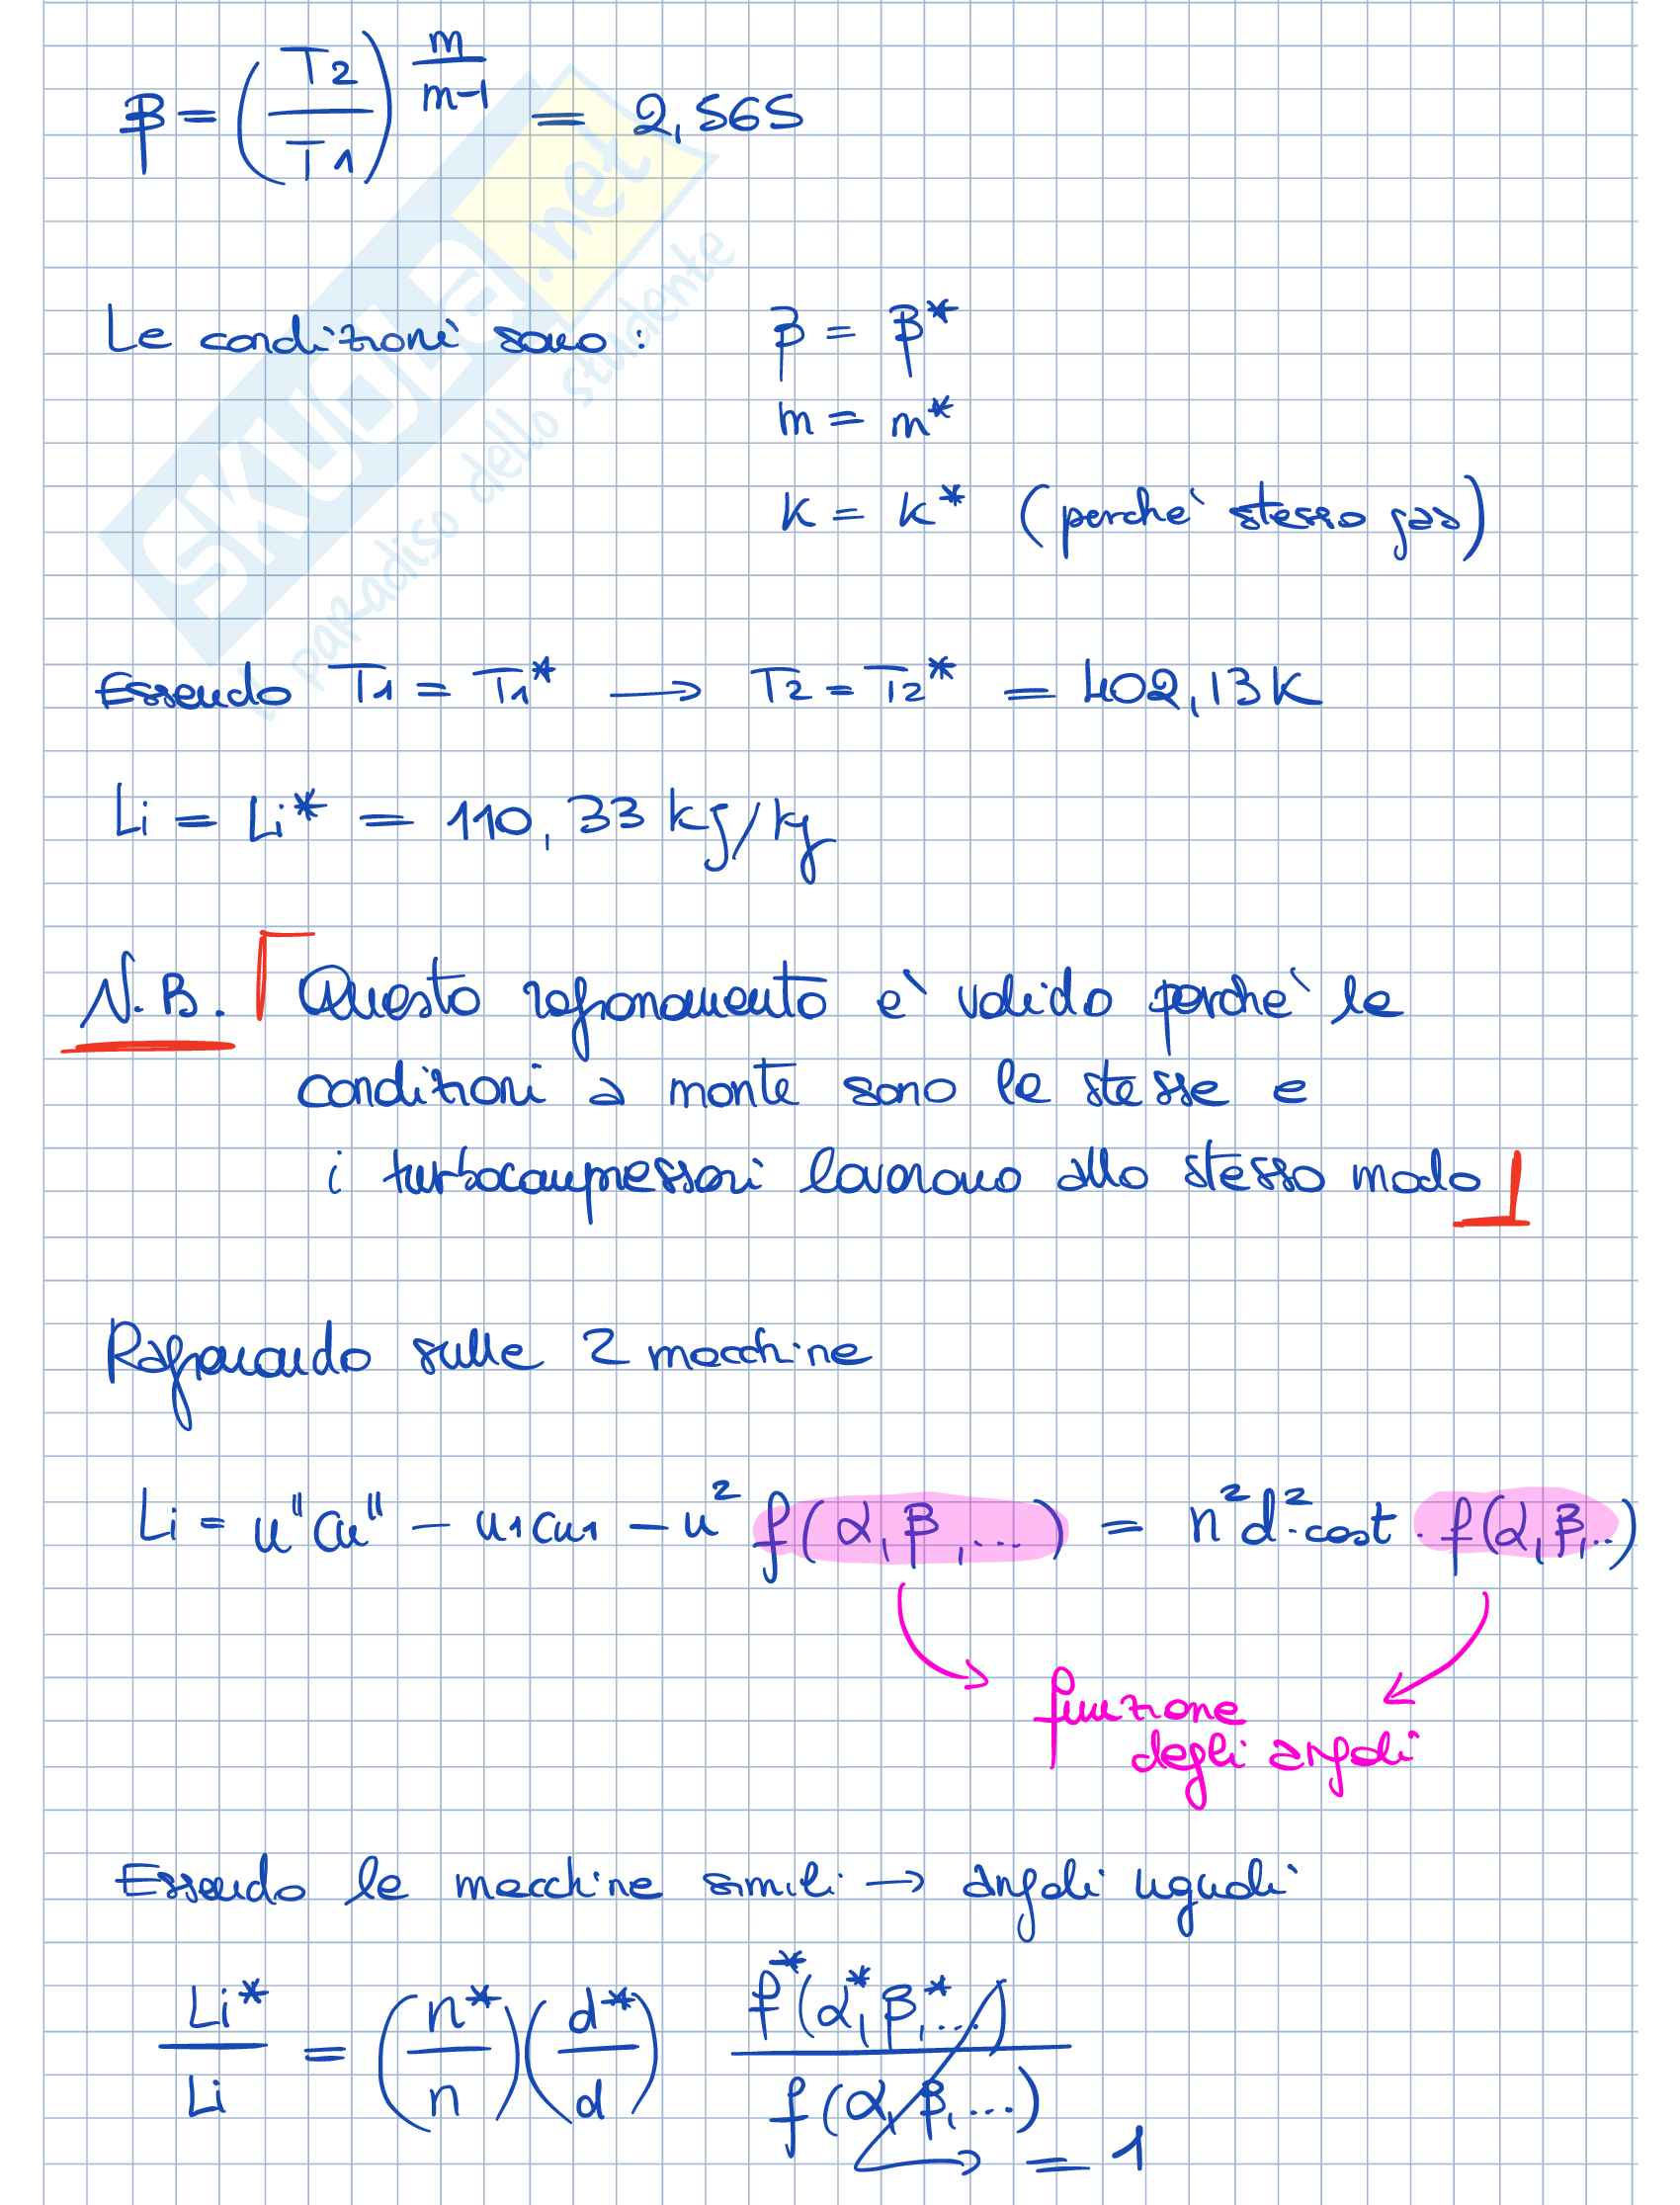 β = (T2/T1)^(m/(m-1)) = 2,565
Le condizioni sono: β = β*
m = m*
K = K* (perchè stesso gas)
Essendo T1 = T1* → T2 = T2* = 402,13 K
Li = Li* = 110,33 kJ/kg
N.B. Questo ragionamento è valido perchè le
condizioni a monte sono le stesse e
i turbocompressori lavorano allo stesso modo
Ragionando sulle 2 macchine
Li = u"cu" - u1cu1 - u² f(α,β,...) = n²d²·cost·f(α,β,..)
funzione
degli angoli
Essendo le macchine simili → angoli uguali
Li*/Li = (n*/n)(d*/d) f*(α*,β*,...)/f(α,β,...) → = 1
SKUOLA.net
il paradiso dello studente